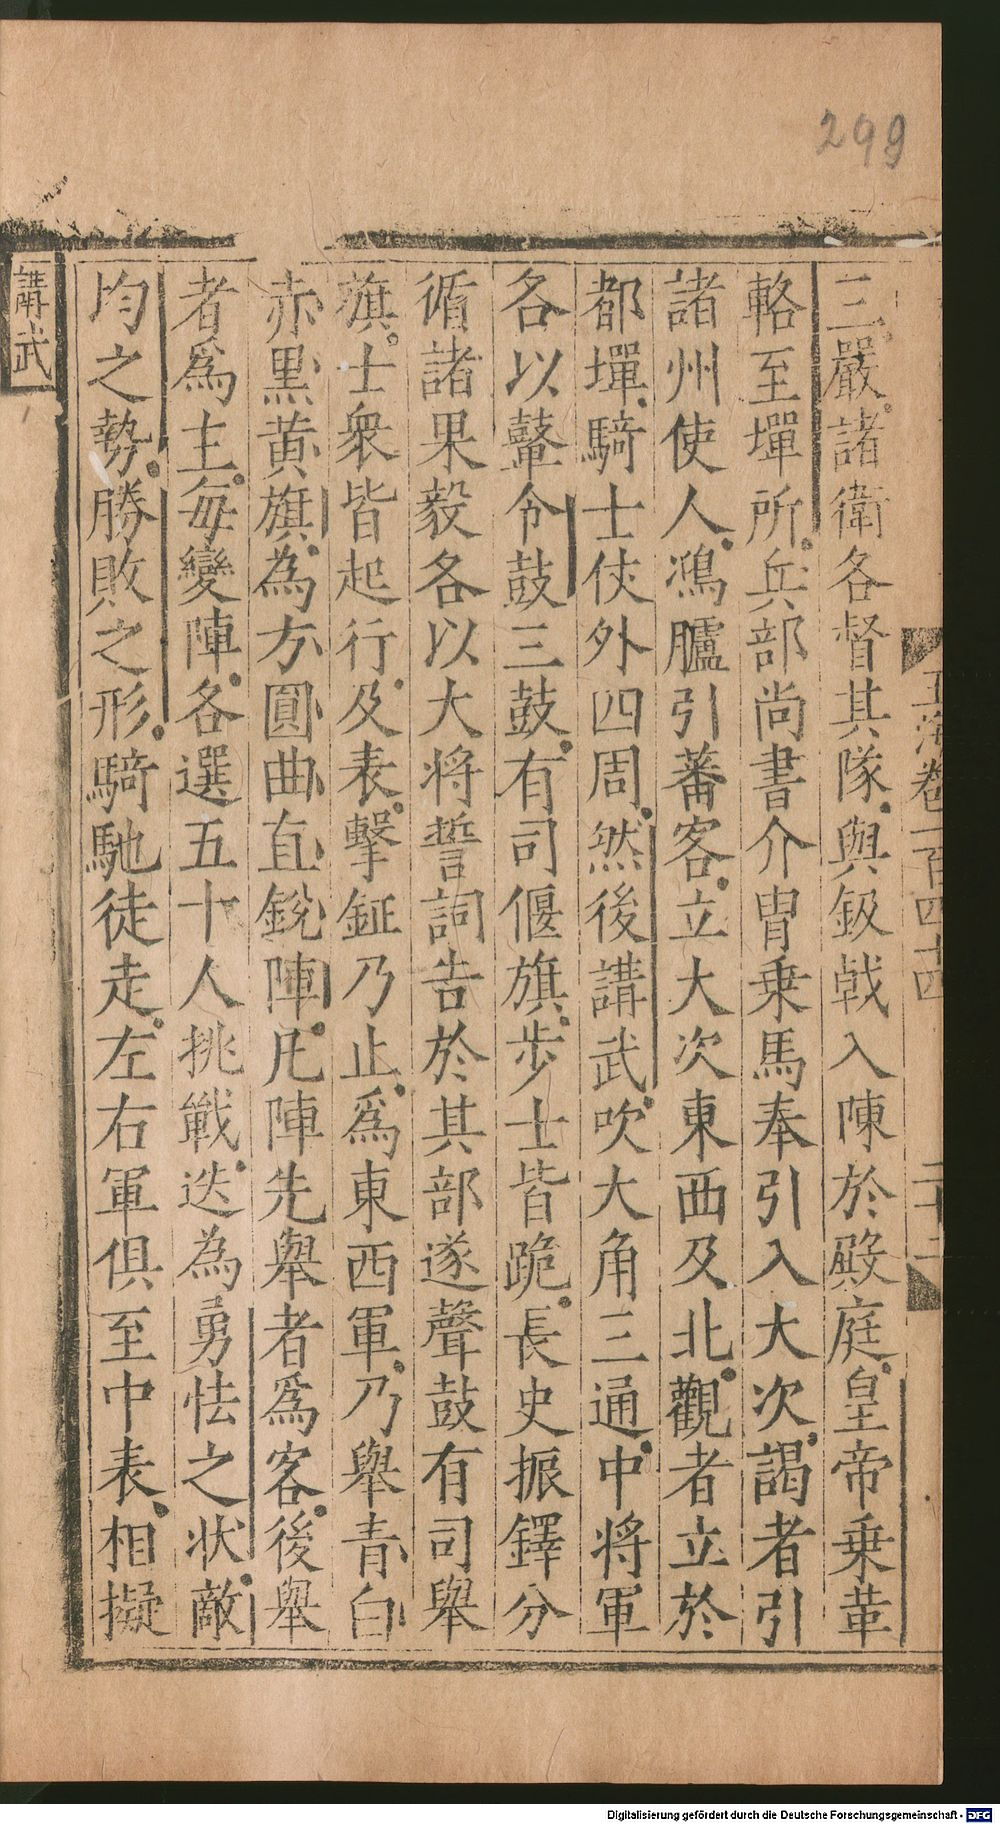 299
玉海卷一百四十四
二十二
三嚴諸衛各督其隊與鈒戟入陳於殿庭皇帝乗革
輅至墠所兵部尚書介胄乗馬奉引入大次謁者引
諸州使人鴻臚引蕃客立大次東西及北觀者立於
都墠騎士仗外四周然後講武吹大角三通中将軍
各以鼙令鼓三鼓有司偃旗步士皆跪長史振鐸分
循諸果毅各以大将誓詞告於其部遂聲鼓有司舉
旗士衆皆起行及表擊鉦乃止爲東西軍乃舉青白
赤黒黄旗為方圓曲直銳陣凡陣先舉者爲客後舉
者爲主每變陣各選五十人挑戰迭為勇怯之状敵
均之勢勝敗之形騎馳徒走左右軍俱至中表相擬
講武
Digitalisierung gefördert durch die Deutsche Forschungsgemeinschaft - DFG